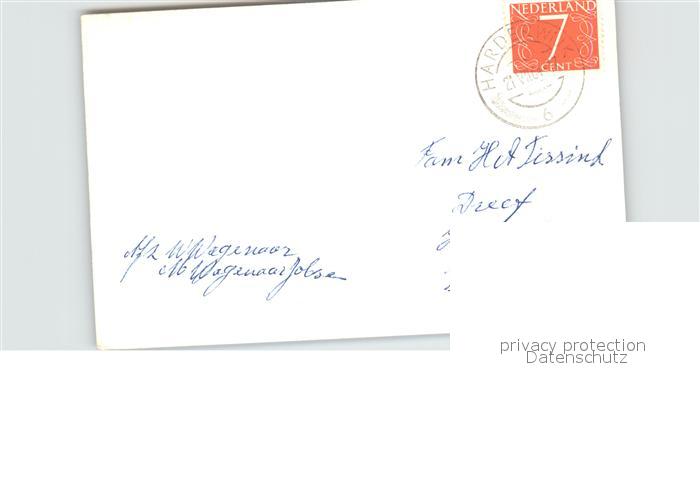 NEDERLAND
7
CENT
HARDERWIJK
6
Fam H A Tissink
Dreef
Afz W Wagenaar
M Wagenaar Jobse
privacy protection
Datenschutz